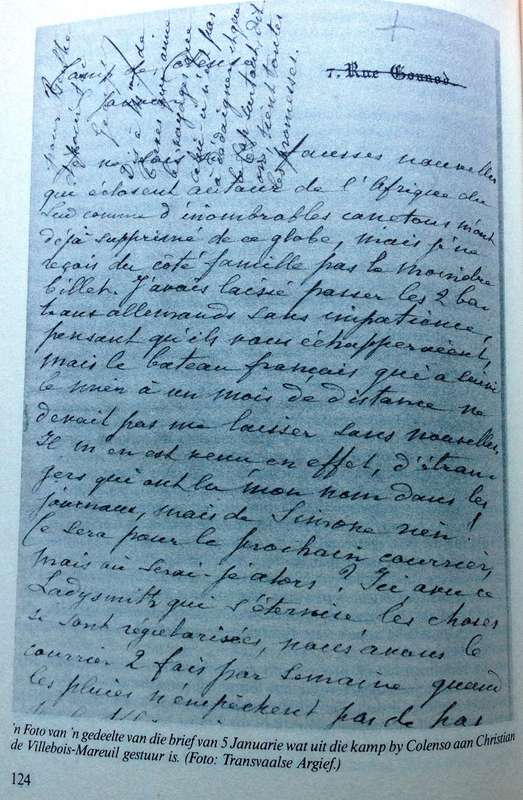 7. Rue Gounod.
Camp de Colenso
5 Janvier
fausses nouvelles
qui éclosent autour de l'Afrique du
Sud comme d'inombrables canetons m'ont
déjà supprimé de ce globe, mais je ne
reçois du côté famille pas le moindre
billet. J'avais laissé passer les 2 ba-
teaux allemands sans impatience,
pensant qu'ils vous échapperaient,
mais le bateau français qui a suivi
le mien à un mois de distance ne
devait pas me laisser sans nouvelles.
Il m'en est venu en effet, d'étran-
gers qui ont lu mon nom dans les
journaux, mais de Simone rien!
Ce sera pour le prochain courrier,
mais où serai-je alors? Ici avec ce
Ladysmith qui s'éternise les choses
se sont régularisées, nous avons le
courrier 2 fois par semaine quand
les pluies n'empêchent pas de pas
'n Foto van 'n gedeelte van die brief van 5 Januarie wat uit die kamp by Colenso aan Christian
de Villebois-Mareuil gestuur is. (Foto: Transvaalse Argief.)
124